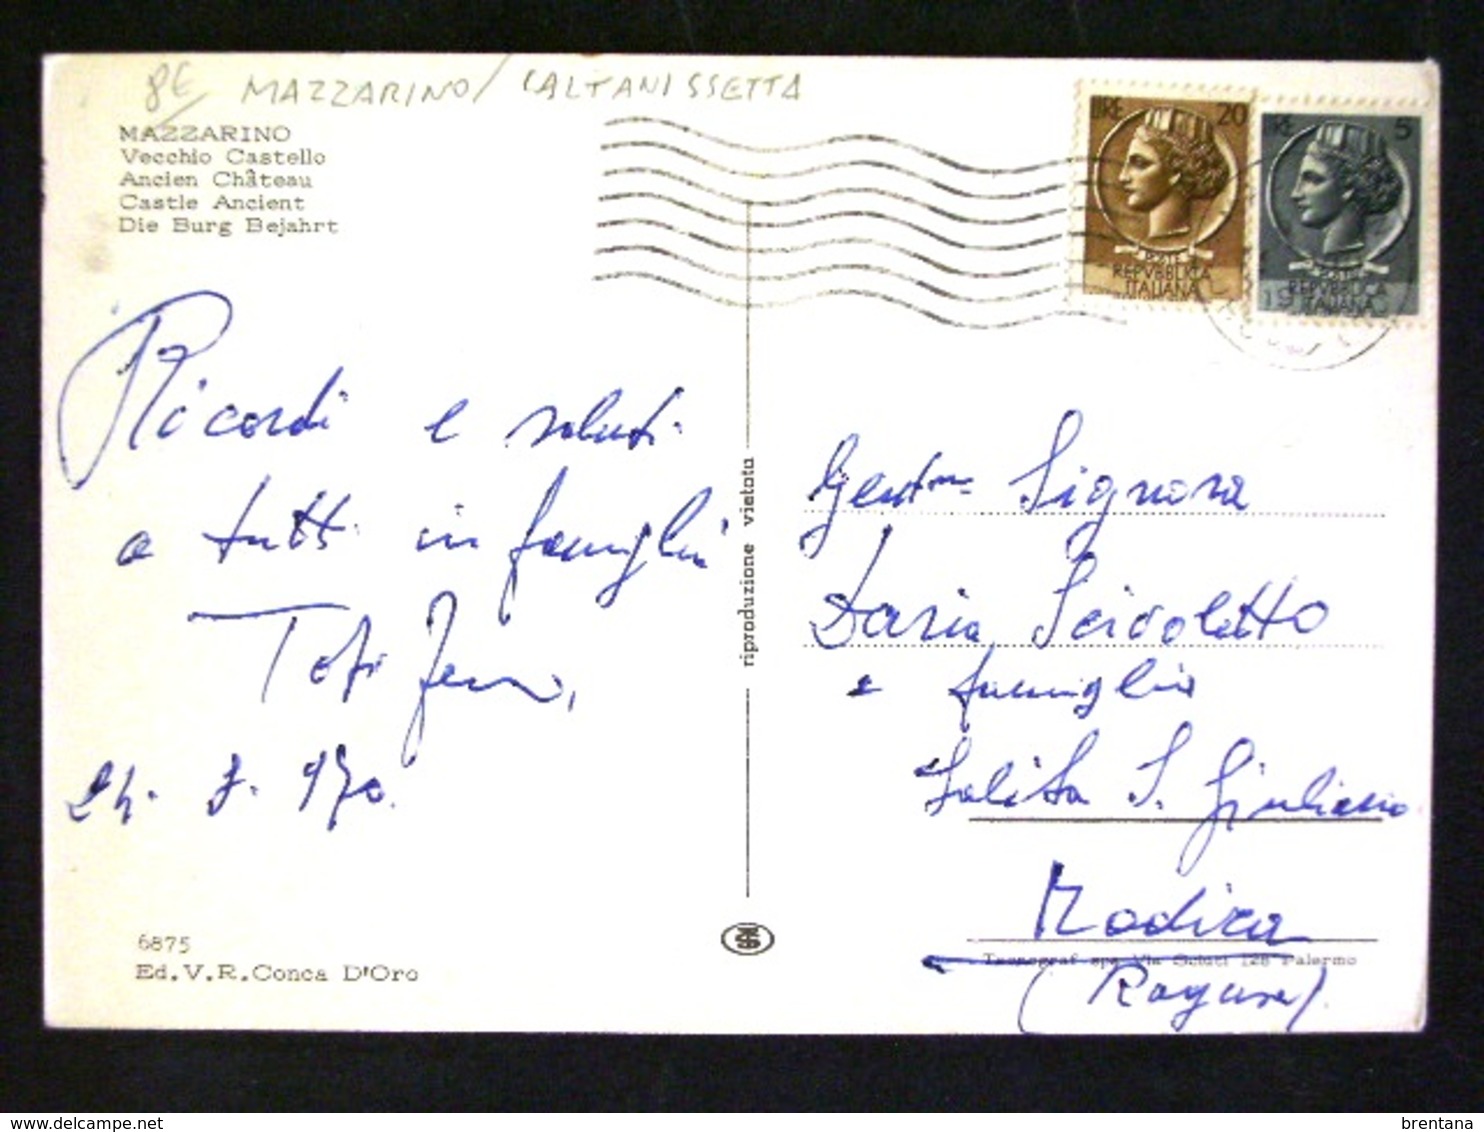 8€ MAZZARINO / CALTANISSETTA
MAZZARINO
Vecchio Castello
Ancien Château
Castle Ancient
Die Burg Bejahrt
LIRE 20
POSTE
REPVBBLICA
ITALIANA
LIRE 5
POSTE
REPVBBLICA
ITALIANA
19
Ricordi e saluti
a tutti in famiglia
24. 7. 970.
6875
Ed. V. R. Conca D'Oro
riproduzione vietata
Gent.ma Signora
Daria Scivoletto
e famiglia
Salita S. Giuliano
Modica
Tecnograf spa Via Sciuti 128 Palermo
(Ragusa)
delcampe.net
brentana